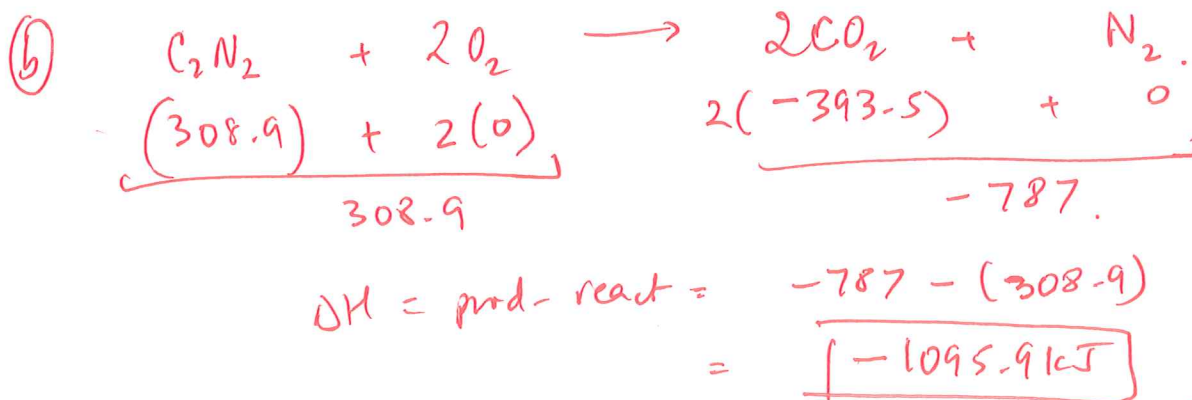 (b) C₂N₂ + 2O₂ ⟶ 2CO₂ + N₂.
(308.9) + 2(0) 2(-393.5) + 0
308.9 -787.
ΔH = prod- react = -787 - (308.9)
= -1095.9 kJ